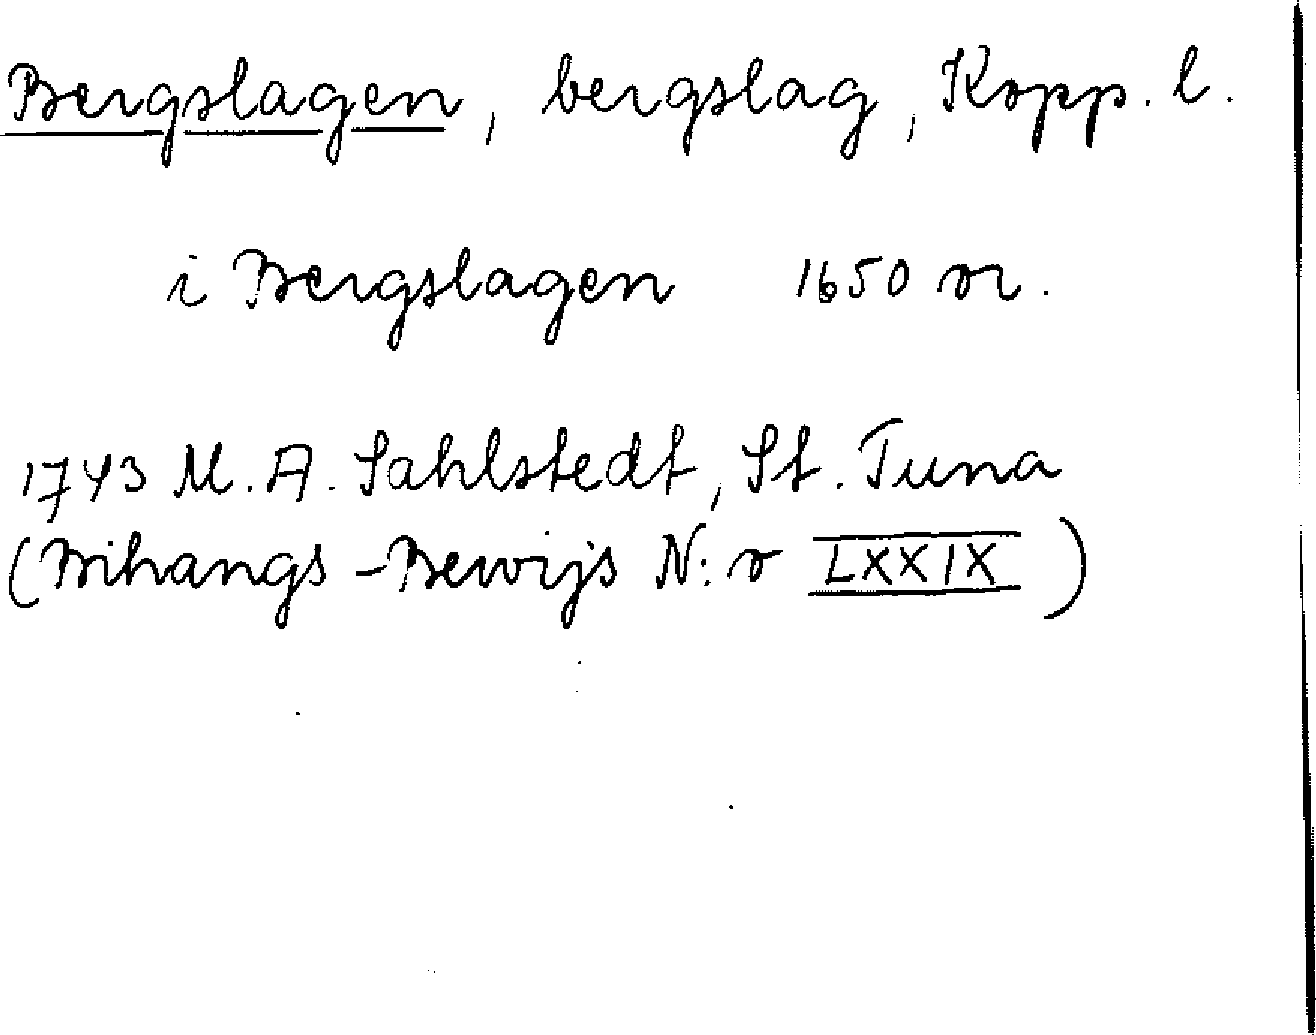 Bergslagen, bergslag, Kopp. l.
i Bergslagen 1650 or.
1743 M. A. Sahlstedt, St. Tuna
(Bihangs-Bewijs N:o LXXIX)